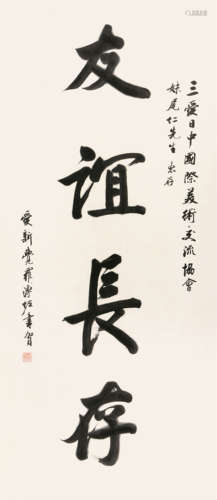 三愛日中國際美術交流協會
妹尾仁先生 惠存
友誼長存
愛新覺羅溥任書賀